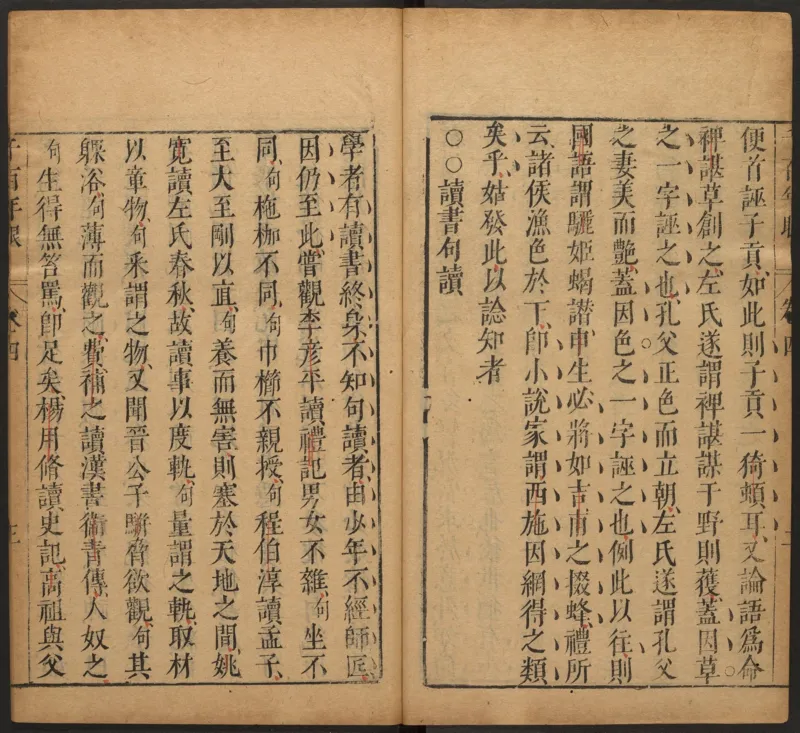 便首誣子貢如此則子貢一猗頓耳又論語爲命
裨諶草創之左氏遂謂裨諶謀于野則獲蓋因草
之一字誣之也孔父正色而立朝左氏遂謂孔父
之妻美而艷蓋因色之一字誣之也例此以往則
國語謂驪姬蝎譖申生必將如吉甫之掇蜂禮所
云諸侯漁色於下卽小說家謂西施因網得之類
矣乎姑發此以諗知者
○○讀書句讀
學者有讀書終身不知句讀者由少年不經師匠
因仍至此嘗觀李彥平讀禮記男女不雜句坐不
同句椸枷不同句巾櫛不親授句程伯淳讀孟子
至大至剛以直句養而無害則塞於天地之間姚
寬讀左氏春秋故講事以度軌句量謂之軌取材
以章物句采謂之物又聞晉公子駢脅欲觀句其
躶浴句薄而觀之費補之讀漢書衞青傳人奴之
句生得無笞罵卽足矣楊用脩讀史記高祖與父
千百年眼
卷四
三